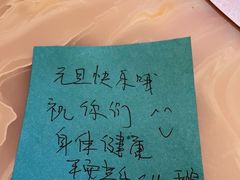 元旦快乐哦
祝你们 ^^
身体健康